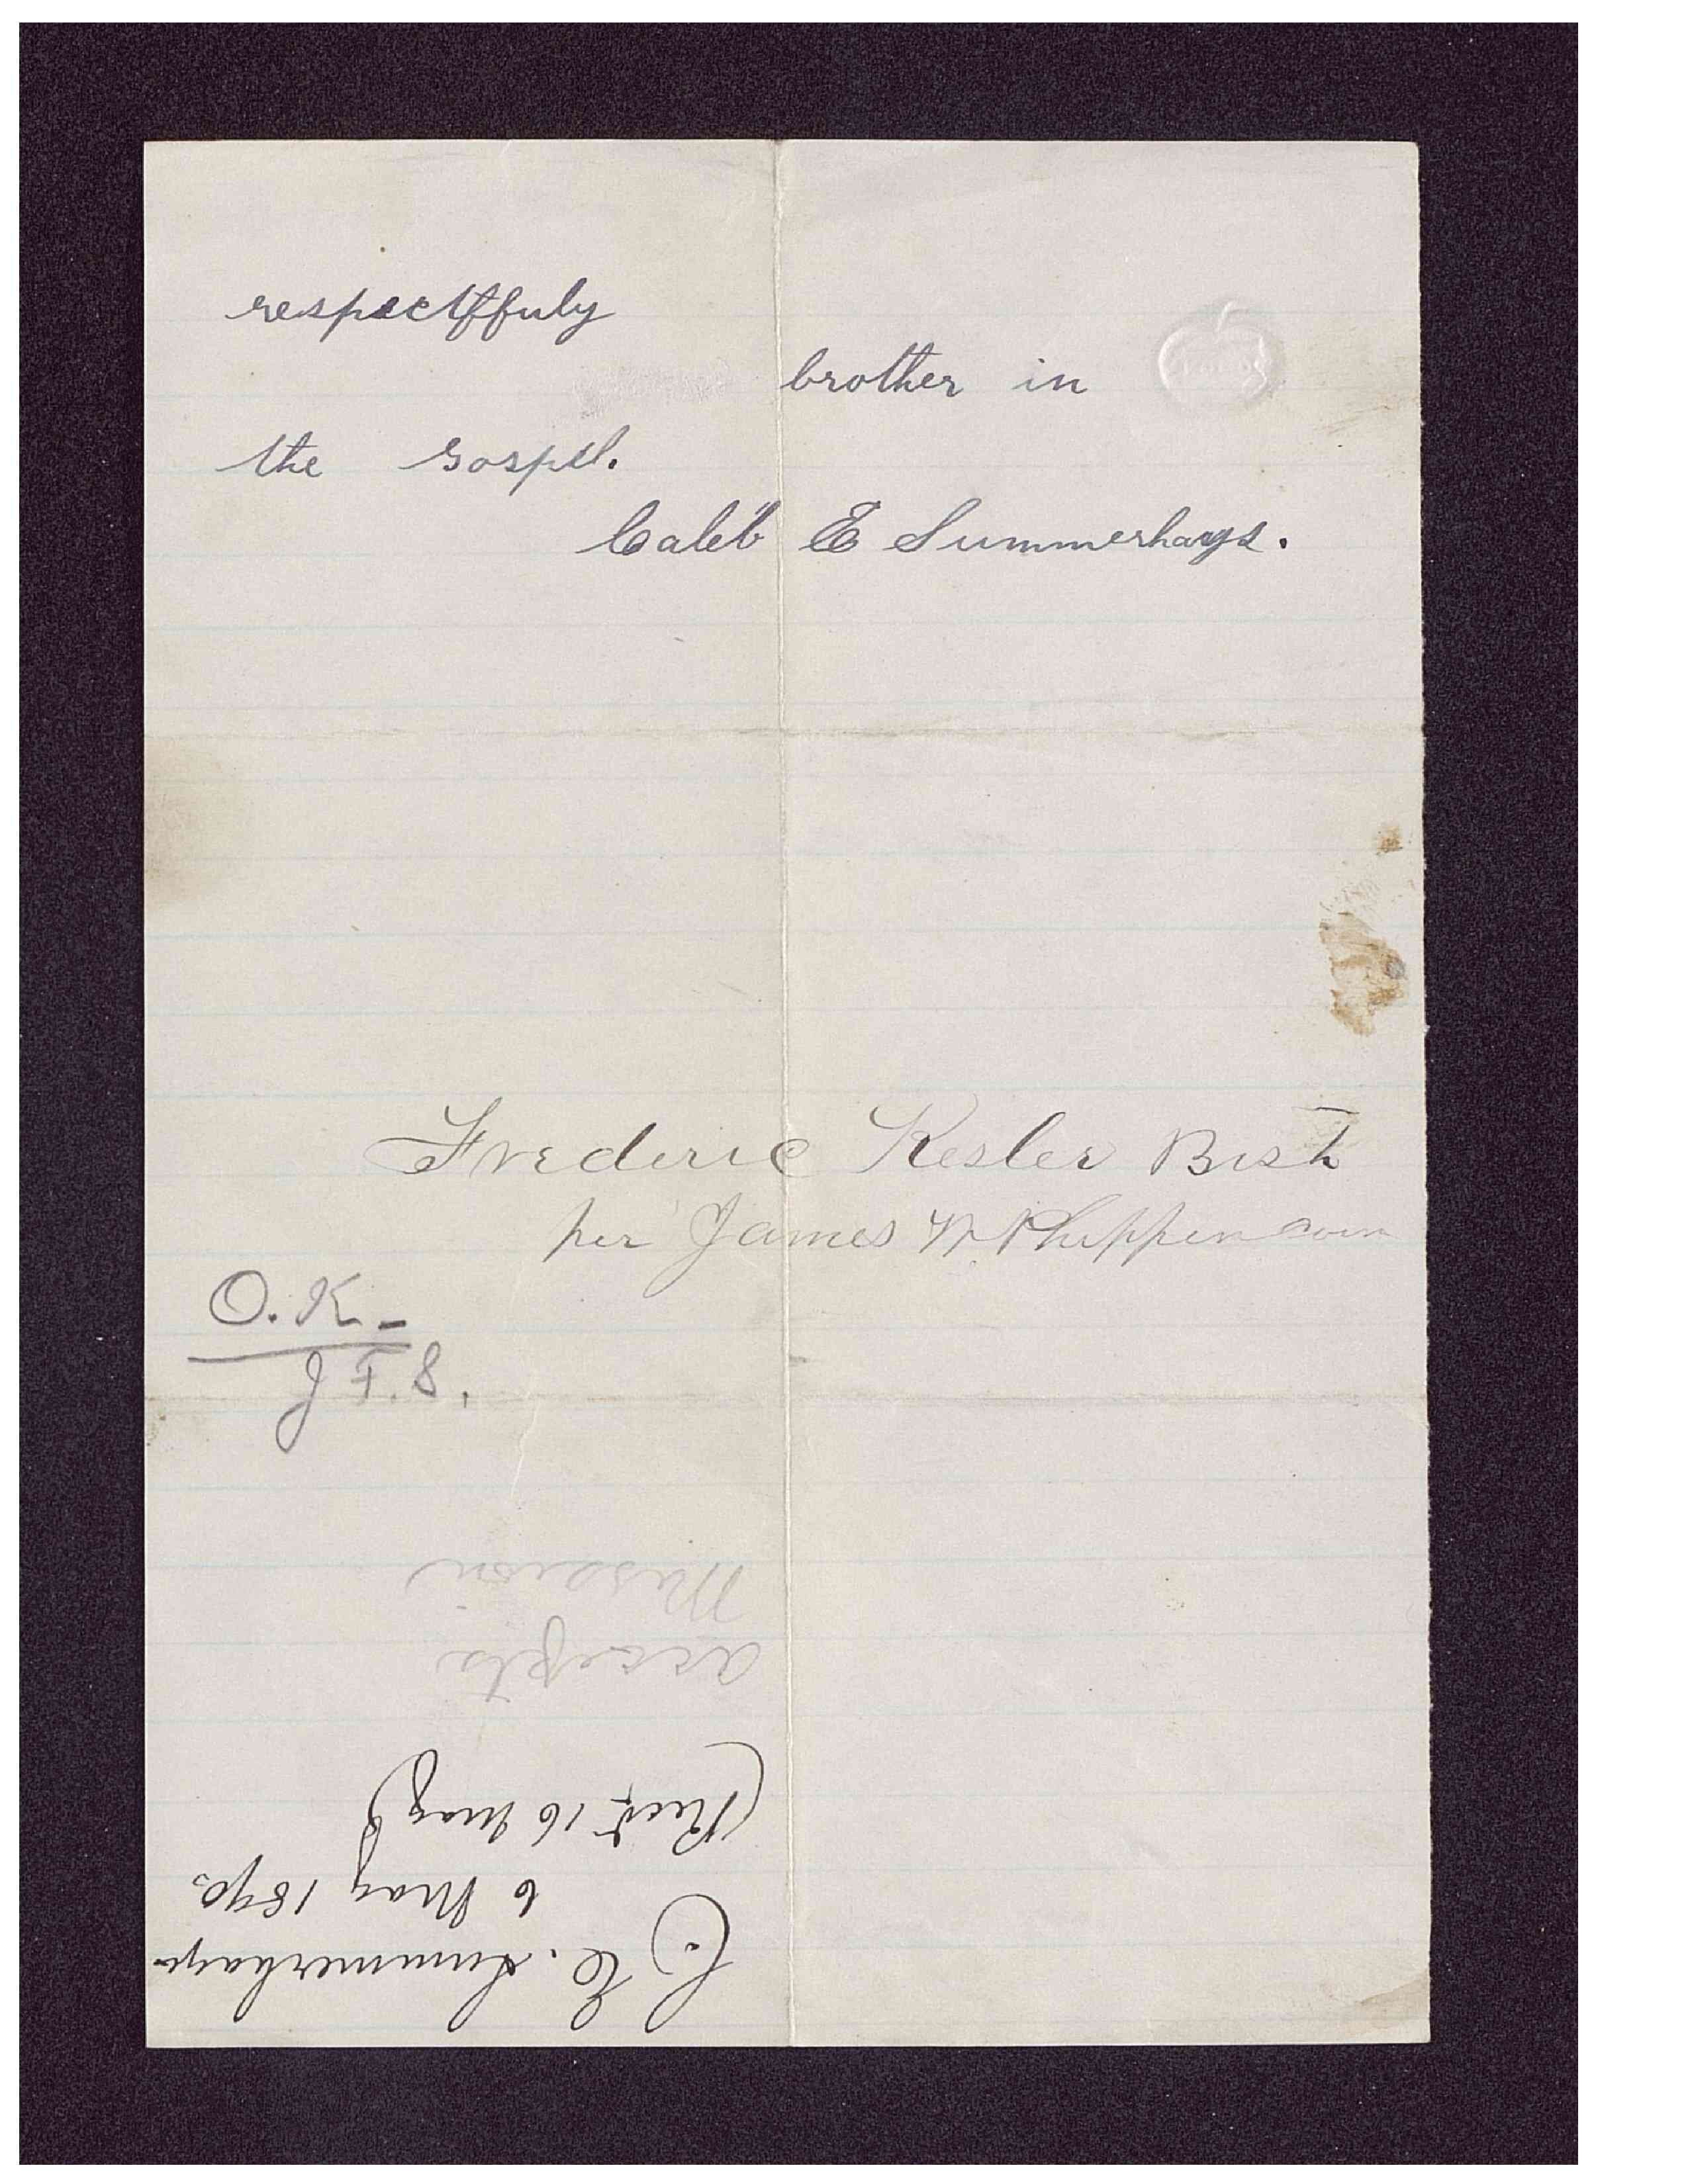 respectffuly
brother in
the gospel.
Caleb E Summerhays.
Frederic Kesler Bish
per James W Phippen
O. K.
J F. S.
C. E. Summerhays
6 May 1890.
(Rect. 16 May)
accepts
Mission